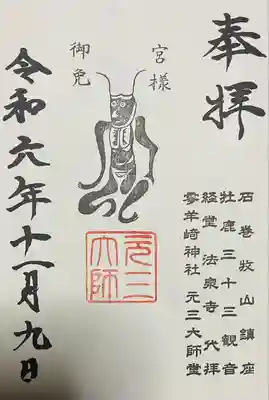 奉拝
石巻牧山鎮座
牡鹿三十三観音
経堂法泉寺代拝
零羊崎神社元三大師堂
宮様
御免
元三
大師
令和六年十一月九日